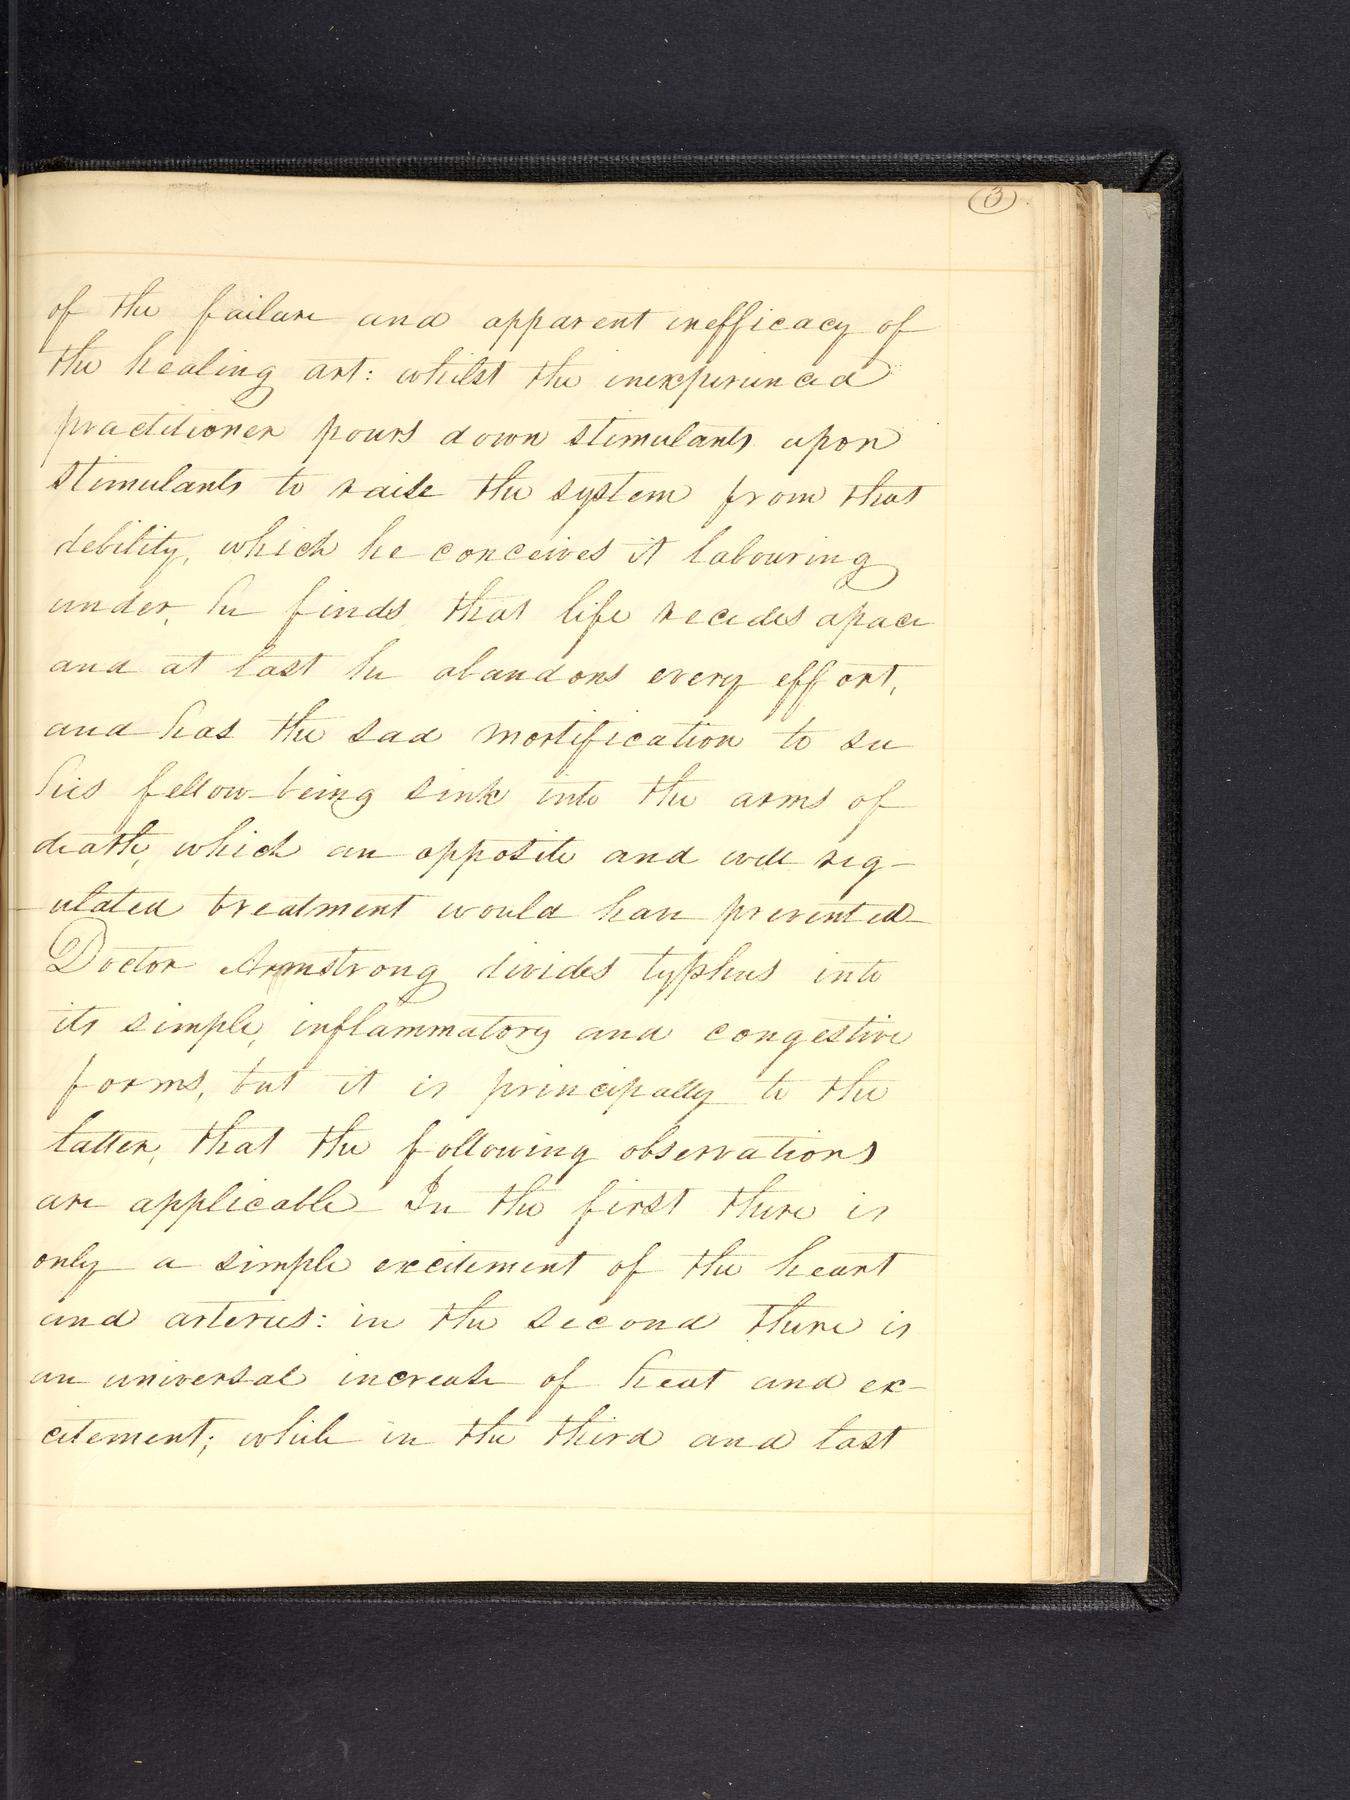 3
of the failure and apparent inefficacy of
the healing art: whilst the inexperienced
practitioner pours down stimulants upon
stimulants to raise the system from that
debility, which he conceives it labouring
under, he finds that life recedes apace
and at last he abandons every effort,
and has the sad mortification to see
his fellow-being sink into the arms of
death, which an opposite and well reg-
ulated treatment would have prevented
Doctor Armstrong divides typhus into
its simple, inflammatory and congestive
forms, but it is principally to the
latter, that the following observations
are applicable In the first there is
only a simple excitement of the heart
and arteries: in the second there is
an universal increase of heat and ex-
citement; while in the third and last